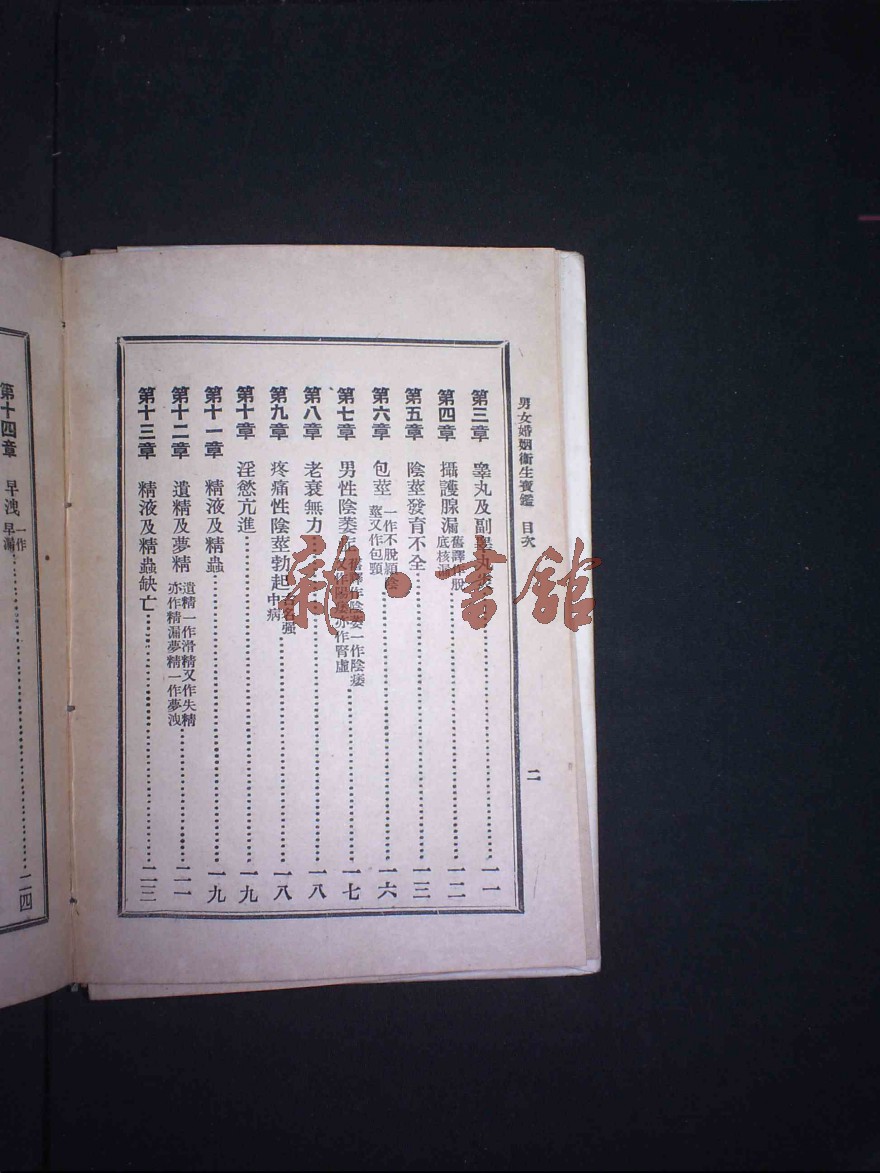 男女婚姻衞生寶鑑 目次
二
第三章 睾丸及副睾丸炎……一一
第四章 攝護腺漏 舊譯作脫底核漏……一二
第五章 陰莖發育不全……一三
第六章 包莖 一作不脫穎陰莖又作包頸……一六
第七章 男性陰萎症 舊譯作陰萎一作陰痿又作陽痿亦作腎虛……一七
第八章 老衰無力……一八
第九章 疼痛性陰莖勃起 古名强中病……一八
第十章 淫慾亢進……一九
第十一章 精液及精蟲……一九
第十二章 遺精及夢精 遺精一作滑精又作失精亦作精漏夢精一作夢洩……二一
第十三章 精液及精蟲缺亡……二三
第十四章 早洩 一作早漏……二四
雜·書館